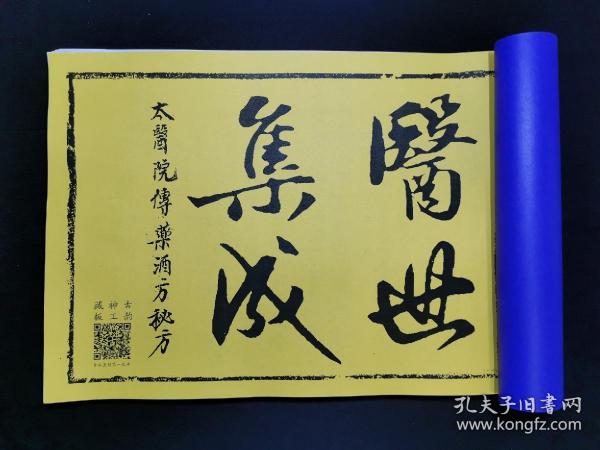 醫世
集成
太醫院傳藥酒方秘方
古韵
神工
藏板
孔夫子旧書网
www.kongfz.com